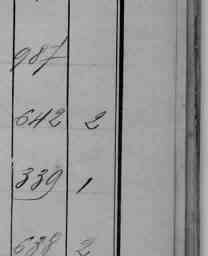 987
642 2
339 1
638 2